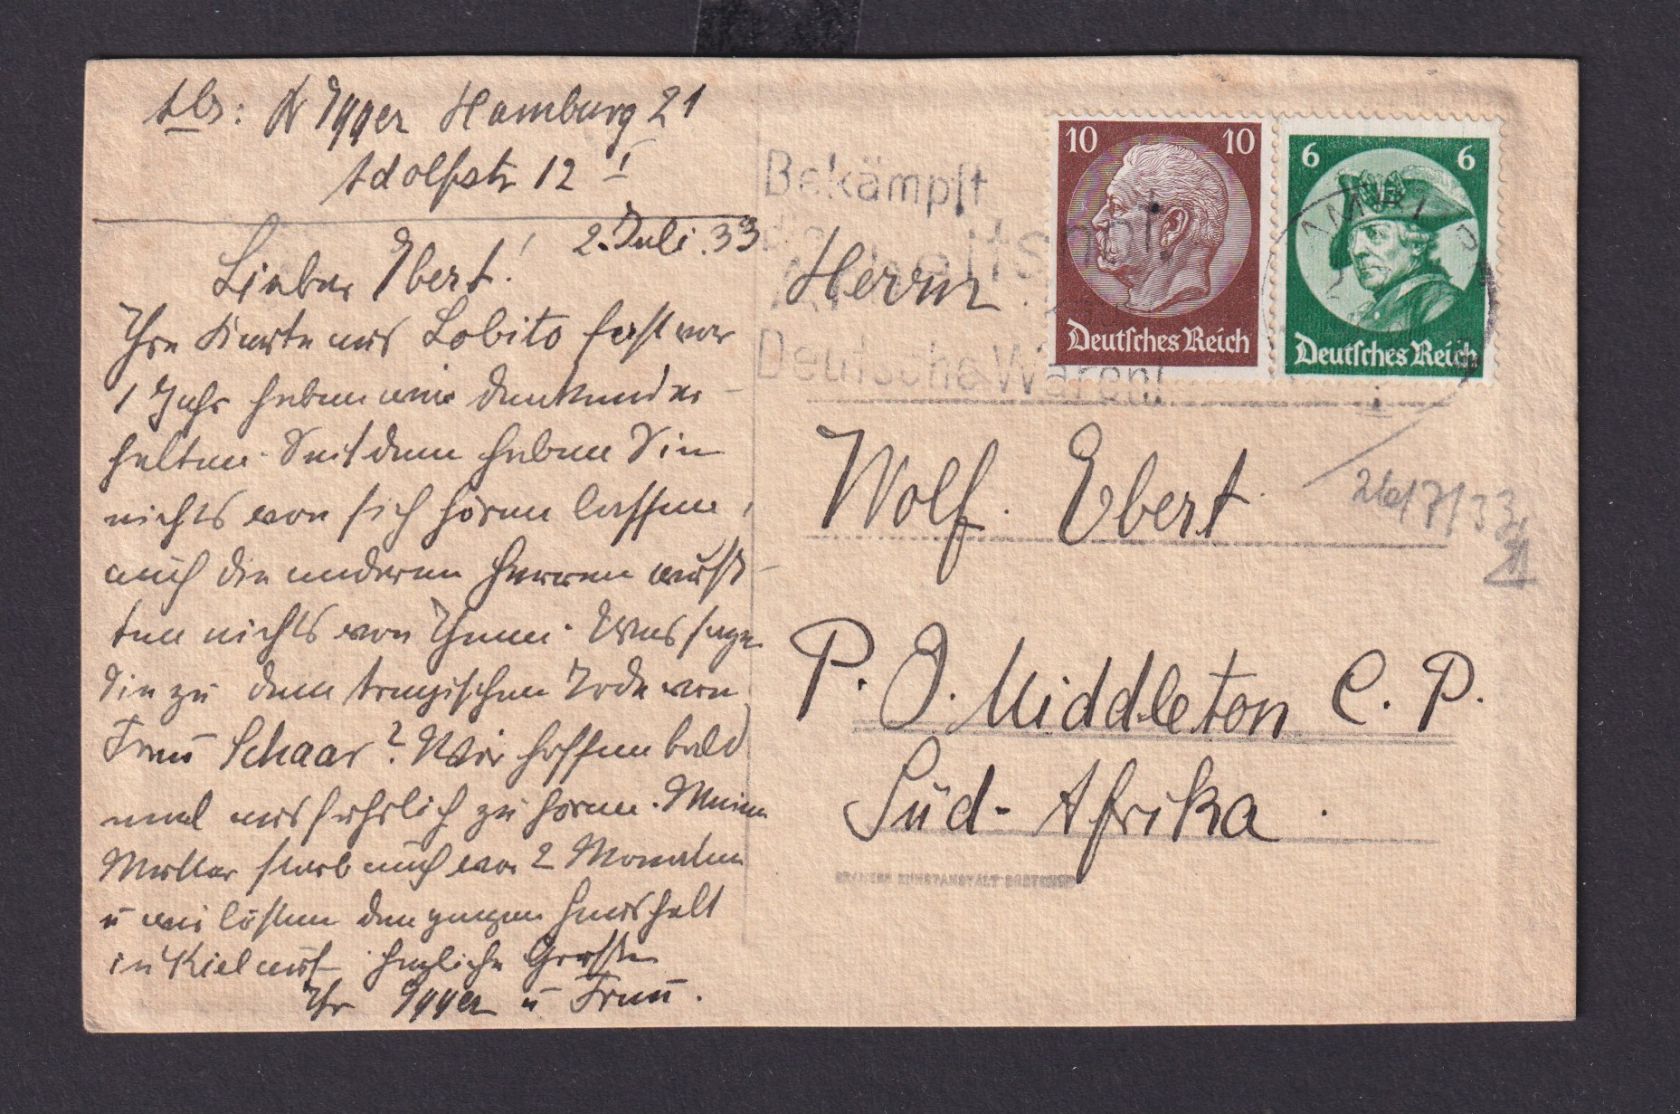 Abs: Dr Egger Hamburg 21
Adolfstr 12 I
2. Juli. 33
Lieber Ebert!
Ihre Karte aus Lobito fast vor
1 Jahr haben wir dankend er-
halten. Seitdem haben Sie
nichts von sich hören lassen,
auch die anderen Herren wuß-
ten nichts von Ihnen. Was sagen
Sie zu dem tragischen Tode von
Frau Schaar? Wir hoffen bald
mal ausführlich zu hören. Meine
Mutter starb auch vor 2 Monaten
u wir lösten den ganzen Haushalt
in Kiel auf. Herzliche Grüße
Ihr Egger u Frau.
Bekämpft
die
Arbeitsnot,
Deutsche Waren!
10 10
Deutsches Reich
6 6
Deutsches Reich
Herrn
Wolf. Ebert.
26/7/33
P. O. Middleton C. P.
Süd-Afrika.